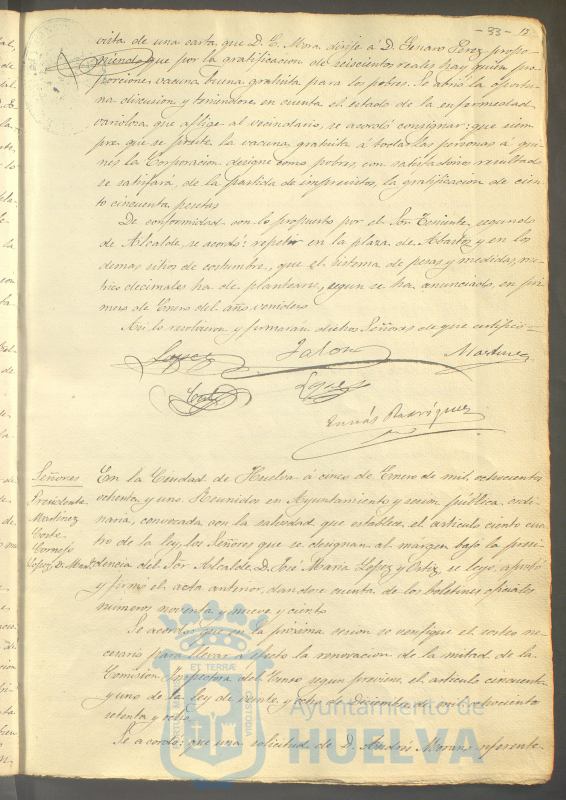 - 33 - 13
vista de una carta que D. E. Mora dirije á D. Genaro Perez propo-
niendo que por la gratificacion de seiscientos reales hay quien pro-
porcione vacuna buena gratuita para los pobres. Se abrió la oportu-
na discusion y teniendose en cuenta el estado de la enfermedad
variolosa que aflige al vecindario, se acordó consignar: que siem-
pre que se preste la vacuna gratuita á todas las personas á qui-
nes la Corporacion designe como pobres, con satisfactorio resultado
se satisfará de la partida de imprevistos, la gratificacion de cien-
to cincuenta pesetas
De conformidad con lo propuesto por el Sor. Teniente segundo
de Alcalde, se acordó: repetir en la plaza de Abastos y en los
demas sitios de costumbre, que el sistema de pesas y medidas, me-
trico decimales ha de plantearse, segun se ha anunciado, en pri-
mero de Enero del año venidero
Asi lo resolvieron y firmaran dichos Señores de que certifico
Lopez Jalon Martinez
Lopez
Tomás Rodriguez
Señores
Presidente
Martinez
Corte
Cornejo
Lopez, D. Manl.
En la Ciudad de Huelva á cinco de Enero de mil ochocientos
ochenta y uno. Reunidos en Ayuntamiento y sesion pública ordi-
naria, convocada con la salvedad que establece el artículo ciento cua-
tro de la ley, los Señores que se designan al margen bajo la presi-
dencia del Sor. Alcalde D. José Maria Lopez y Ortiz se leyó, aprobó
y firmó el acta anterior, dandose cuenta de los boletines oficiales
números noventa y nueve y ciento
Se acordó que en la próxima sesion se verifique el sorteo ne-
cesario para llevar á efecto la renovacion de la mitad de la
Comision Inspectora del Censo segun previene el artículo cincuenta
y uno de la ley de veinte y ocho de Diciembre de mil ochocientos
setenta y ocho.
Se acordó: que una solicitud de D. Andrés Moreno referente
ET TERRÆ
CUSTODIA
Ayuntamiento de
HUELVA